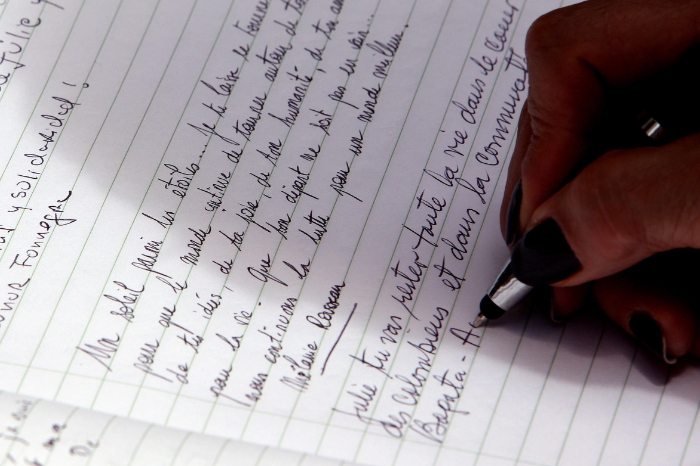 Julie y
y solidaridad !
Fonnegra
Ma soleil parmi les étoiles... Je te laisse te
pour que le monde continue de tourner autour de
de tes idées, de ta joie, de ton humanité, de ton
pour la vie. Que ton départ ne soit pas en vain...
nous continuons la lutte pour un monde meilleur.
Mélanie
Julie tu vas rester toute la vie dans le coeur
des colombiens et dans la communauté
Bogota - A